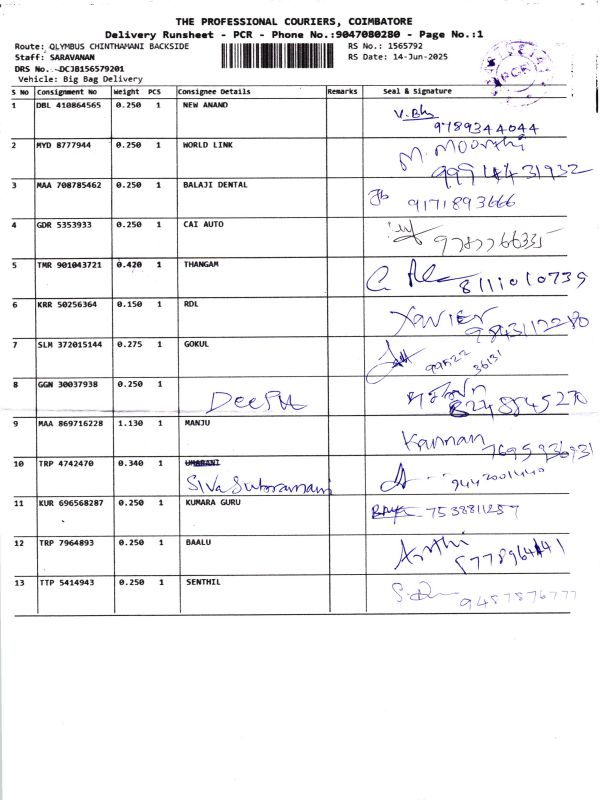 THE PROFESSIONAL COURIERS, COIMBATORE
Delivery Runsheet - PCR - Phone No.:9047080280 - Page No.:1
Route: OLYMBUS CHINTHAMANI BACKSIDE RS No.: 1565792
Staff: SARAVANAN RS Date: 14-Jun-2025
DRS No.:-DCJB156579201
Vehicle: Big Bag Delivery
PCR
S No Consignment No Weight PCS Consignee Details Remarks Seal & Signature
1 DBL 410864565 0.250 1 NEW ANAND
9789344044
2 MYD 8777944 0.250 1 WORLD LINK M. Moorthi
9991443193２
3 MAA 708785462 0.250 1 BALAJI DENTAL
9171893666
4 GDR 5353933 0.250 1 CAI AUTO
5 TMR 901043721 0.420 1 THANGAM 8111010739
6 KRR 50256364 0.150 1 RDL Xavier
9843112280
7 SLM 372015144 0.275 1 GOKUL
99522
36131
8 GGN 30037938 0.250 1 Deepa
8248845270
9 MAA 869716228 1.130 1 MANJU Kannan
7695936931
10 TRP 4742470 0.340 1 UMARANI
Siva Subramani 9442001440
11 KUR 696568287 0.250 1 KUMARA GURU
7538811257
12 TRP 7964893 0.250 1 BAALU Arthi
13 TTP 5414943 0.250 1 SENTHIL
9487876777